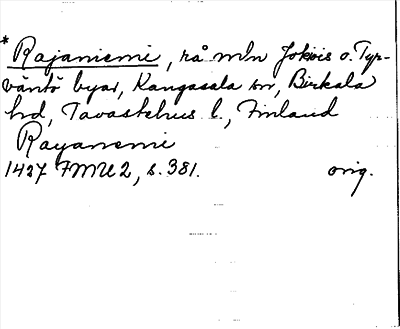 * Rajaniemi, rå mln Jokois o. Tyr-
väntö byar, Kangasala sn, Birkala
hd, Tavastehus l., Finland
Rayanemi
1427 FMU 2, s. 381. orig.